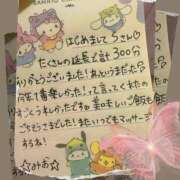 SANRIO CHARACTERS
はじめましてうさい♡
たくさんの延長で計300分
ありがとうございました!あっというまだったね
今年1番楽しかった!って言ってくれたの
すっごくうれしかったですඞ美味しいご飯も
ごちそうさまでした!またいつでもマッサージ
するね!
☆みお☆